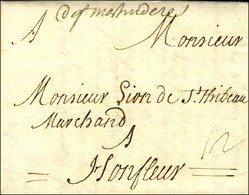 A Monsieur
Monsieur Lion de St Thibeau
Marchand
A
Honfleur